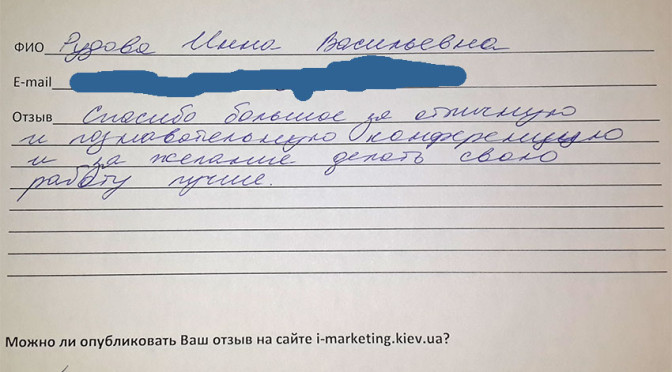 ФИО Рудова Инна Васильевна
E-mail
Отзыв Спасибо большое за отличную
и познавательную конференцию
и за желание делать свою
работу лучше.
Можно ли опубликовать Ваш отзыв на сайте i-marketing.kiev.ua?